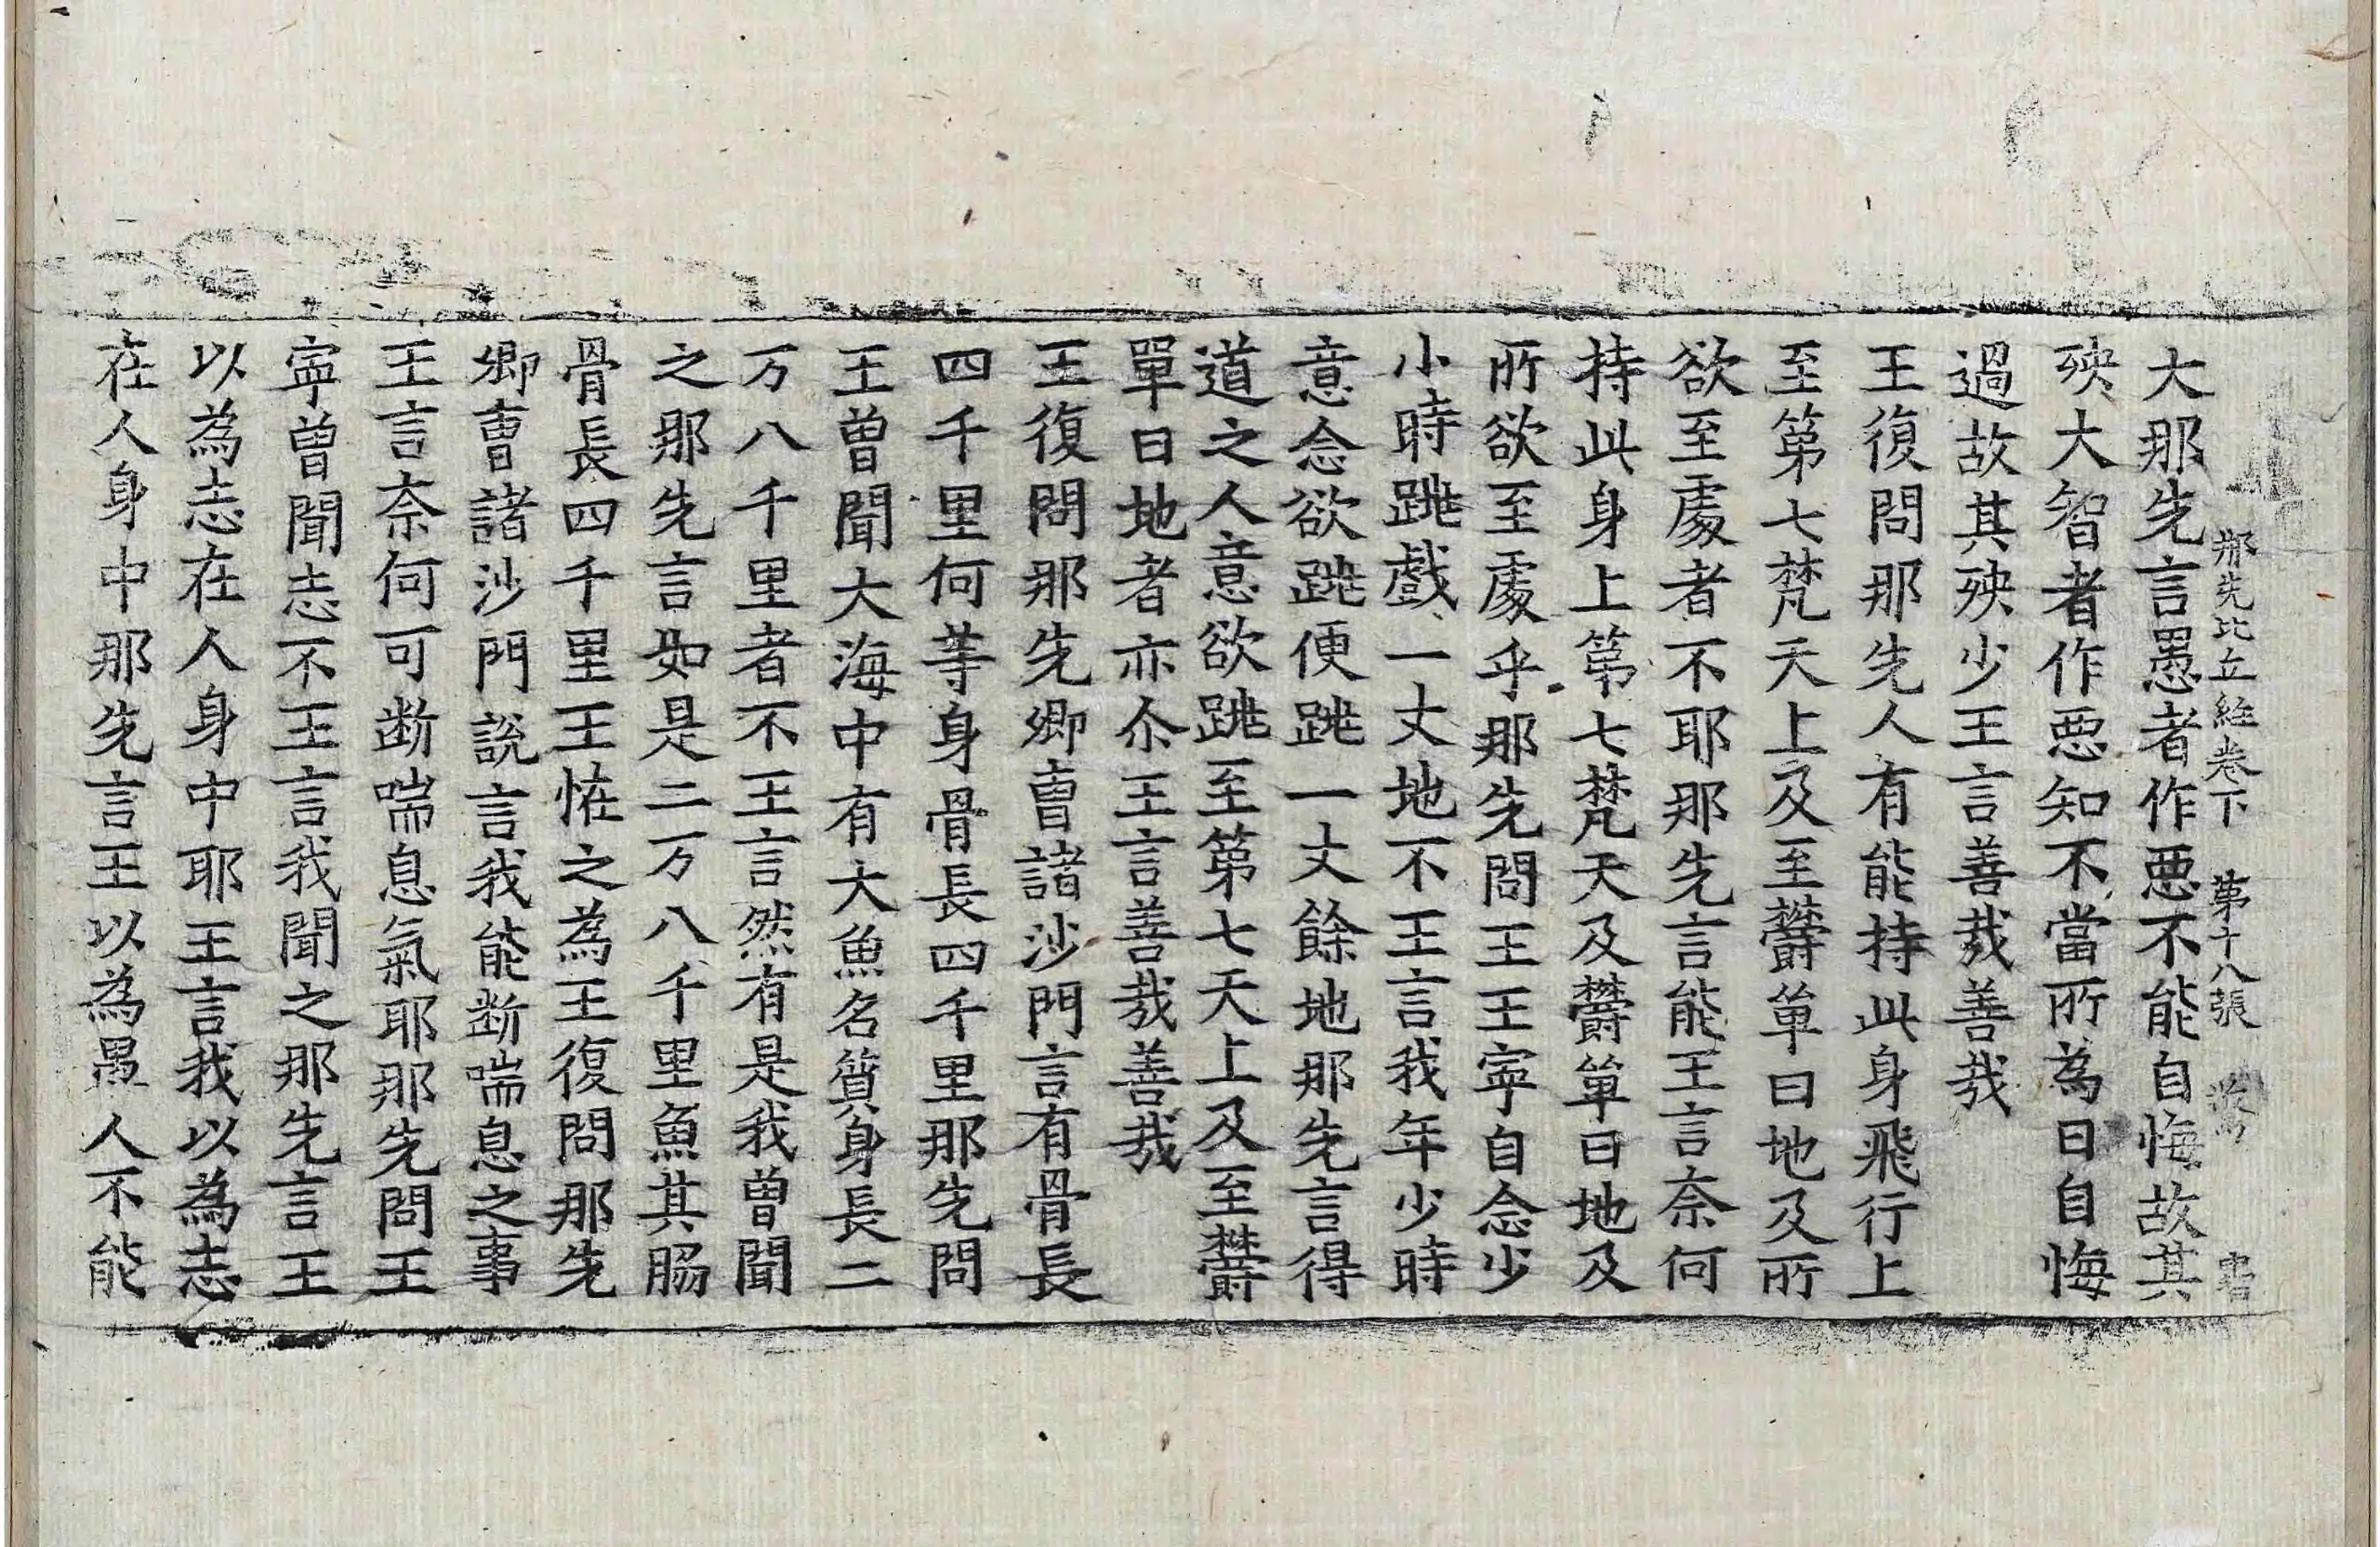 那先比丘經卷下 第十八張
大那先言愚者作惡不能自悔故其
殃大智者作惡知不當所為日自悔
過故其殃少王言善哉善哉
王復問那先人有能持此身飛行上
至第七梵天上及至欝單曰地及所
欲至處者不耶那先言能王言奈何
持此身上第七梵天及欝單曰地及
所欲至處乎那先問王王寧自念少
小時跳戲一丈地不王言我年少時
意念欲跳便跳一丈餘地那先言得
道之人意欲跳至第七天上及至欝
單曰地者亦尒王言善哉善哉
王復問那先卿曺諸沙門言有骨長
四千里何等身骨長四千里那先問
王曾聞大海中有大魚名質身長二
万八千里者不王言然有是我曾聞
之那先言如是二万八千里魚其脇
骨長四千里王恠之為王復問那先
卿曺諸沙門說言我能断喘息之事
王言奈何可断喘息氣耶那先問王
寧曾聞志不王言我聞之那先言王
以為志在人身中耶王言我以為志
在人身中那先言王以為愚人不能